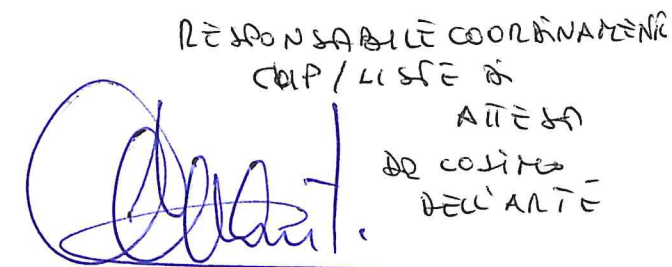 RESPONSABILE COORDINAMENTO
CUP / LISTE DI
ATTESA
DR COSIMO
DELL'ARTE